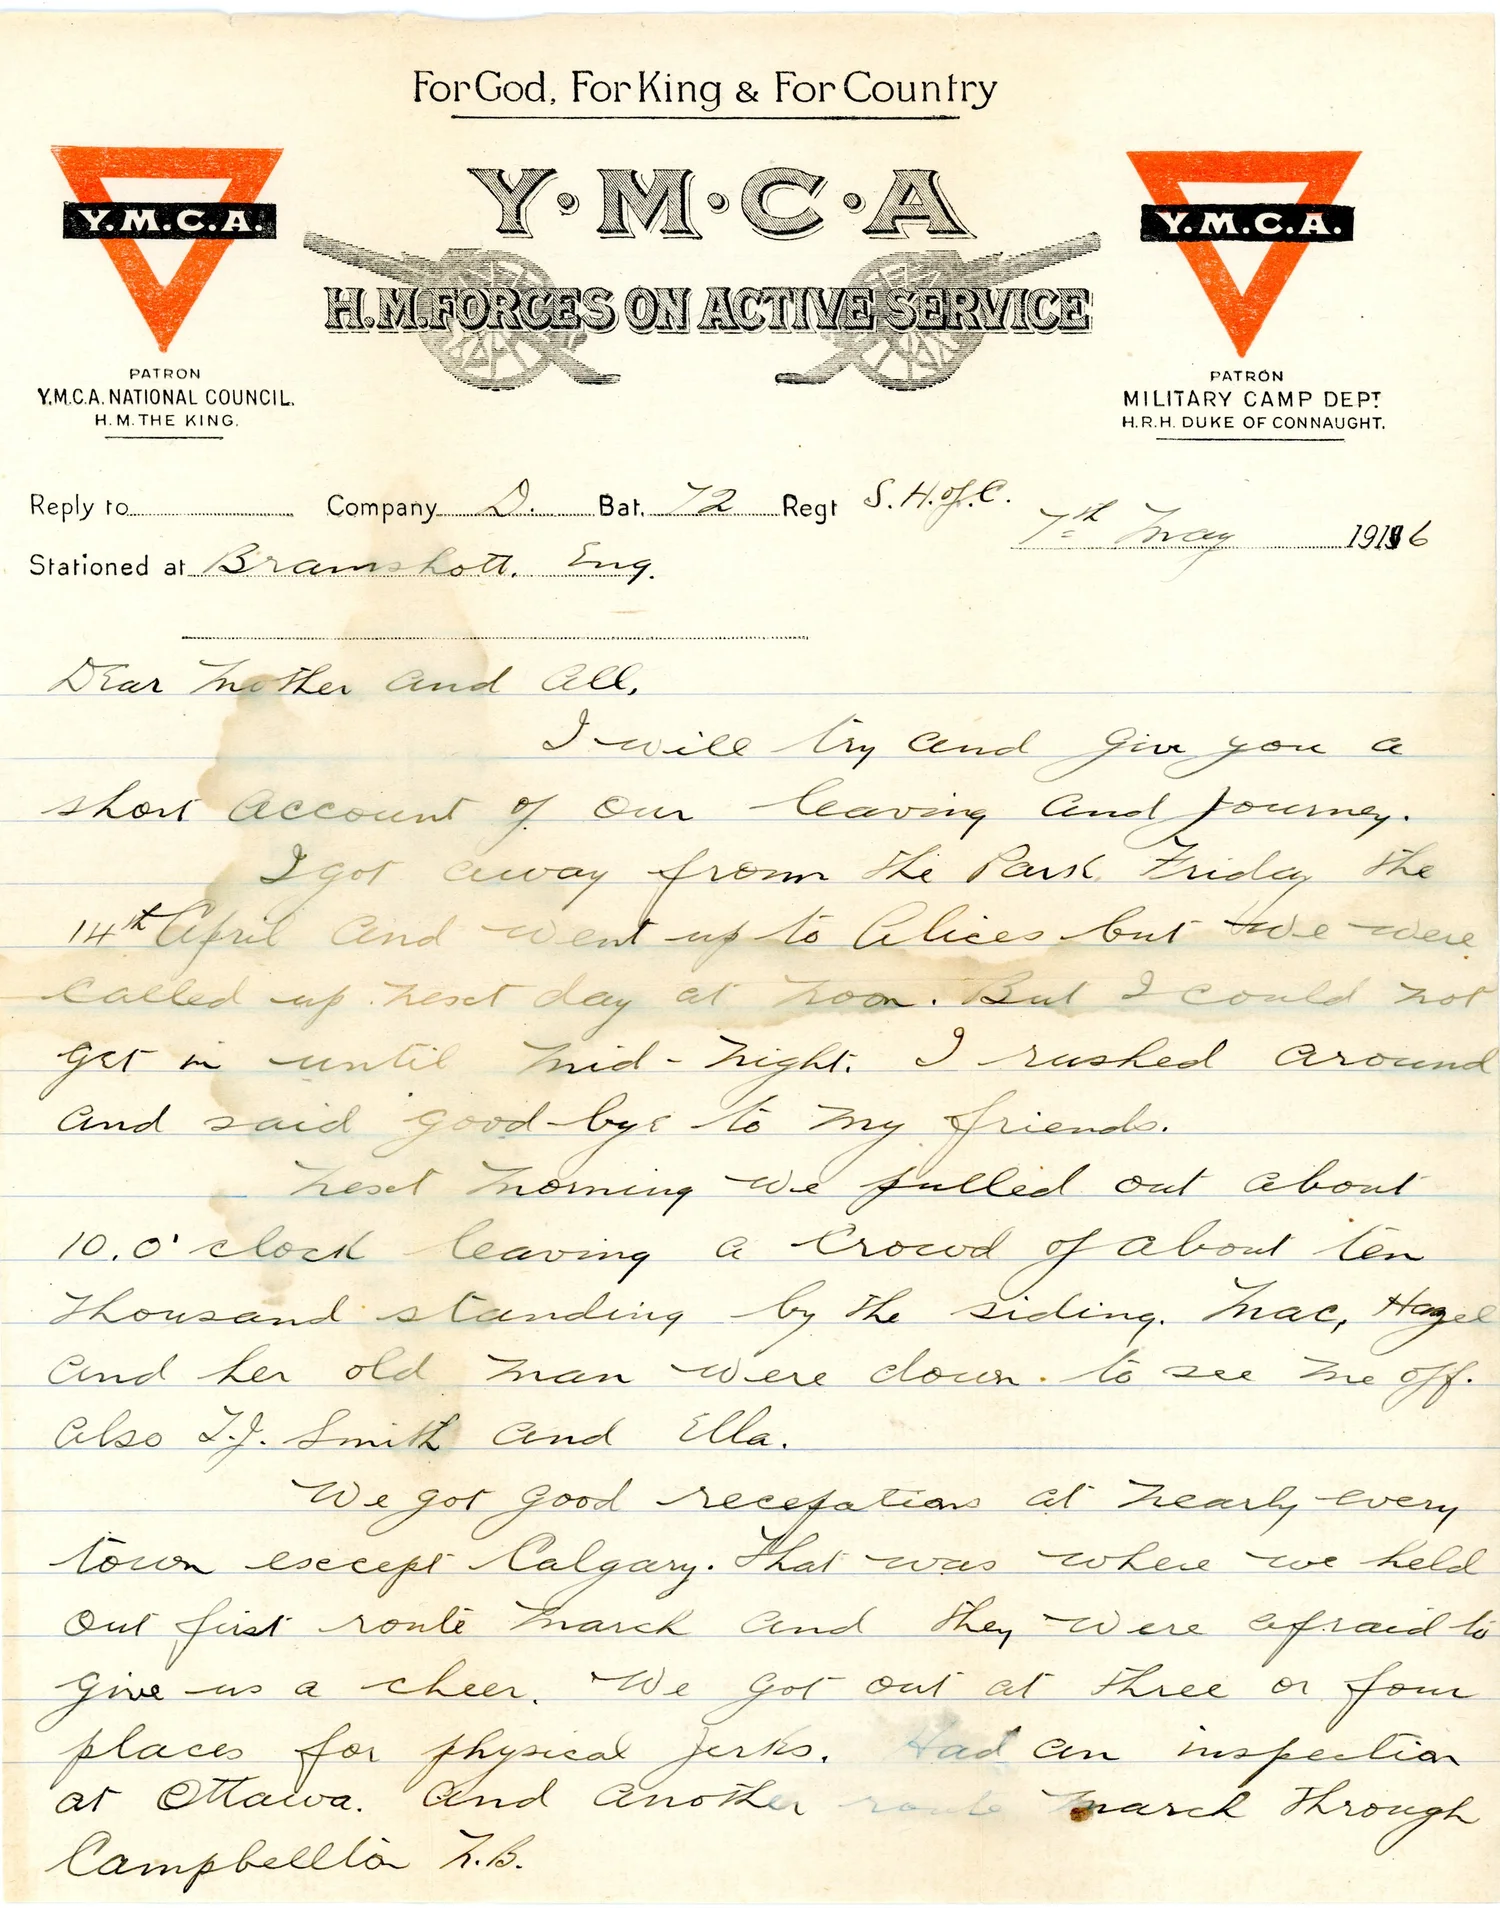 For God, For King & For Country
Y.M.C.A.
Y.M.C.A
Y.M.C.A.
H.M. FORCES ON ACTIVE SERVICE
PATRON
Y.M.C.A. NATIONAL COUNCIL.
H.M. THE KING.
PATRON
MILITARY CAMP DEPT.
H.R.H. DUKE OF CONNAUGHT.
Reply to Company D. Bat. 72 Regt S.H. of C.
7th May 1916
Stationed at Bramshott. Eng.
Dear Mother and All.
I will try and give you a
short account of our leaving and journey.
I got away from the Park Friday the
14th April and went up to Alices but we were
called up next day at noon. But I could not
get in until mid-night. I rushed around
and said good-bye to my friends.
Next morning we pulled out about
10.0' clock leaving a crowd of about ten
thousand standing by the siding. Mac, Hazel
and her old man were down to see me off.
Also T.J. Smith and Ella.
We got good receptions at nearly every
town except Calgary. That was where we held
out first route march and they were afraid to
give us a cheer. We got out at three or four
places for physical jerks. Had an inspection
at Ottawa. And another route march through
Campbellton N.B.